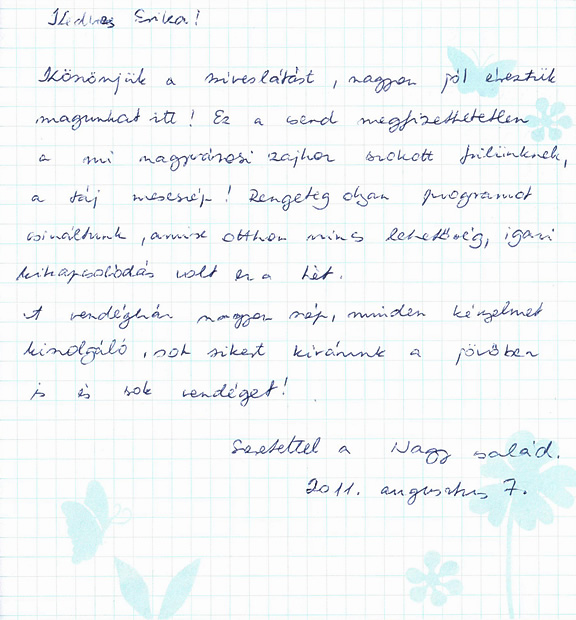 Kedves Erika!
Köszönjük a szíveslátást, nagyon jól éreztük
magunkat itt! Ez a csend megfizethetetlen
a mi nagyvárosi zajhoz szokott fülünknek,
a táj meseszép! Rengeteg olyan programot
csináltunk, amire otthon nincs lehetőség, igazi
kikapcsolódás volt ez a hét.
A vendégház nagyon szép, minden kényelmet
kiszolgáló, sok sikert kívánunk a jövőben
is és sok vendéget!
Szeretettel a Nagy család.
2011. augusztus 7.